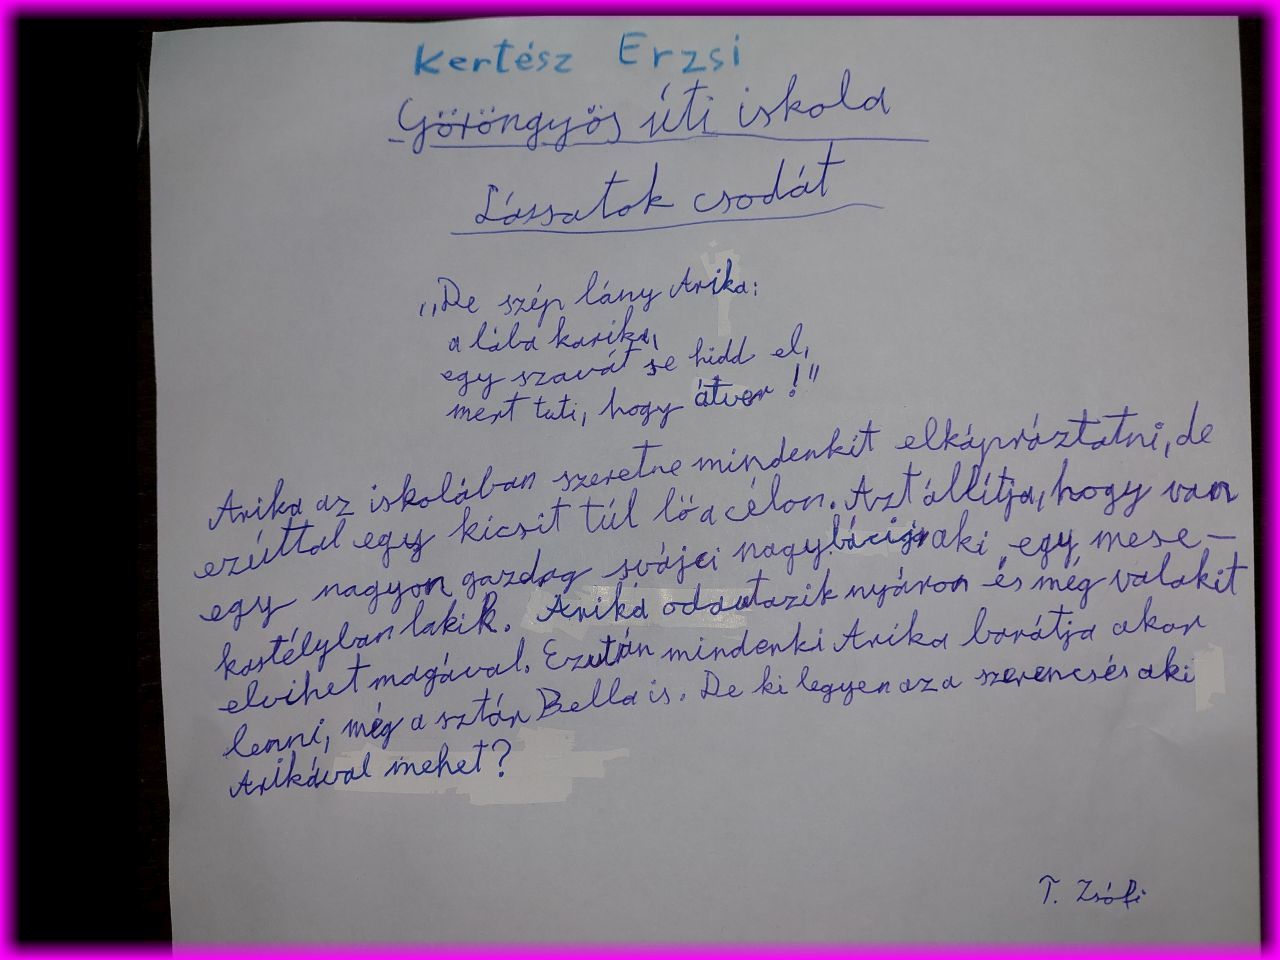 Kertész Erzsi
Göröngyös úti iskola
Lássatok csodát
„De szép lány Arika:
a lába karika,
egy szavát se hidd el,
mert tuti, hogy átver!"
Arika az iskolában szeretne mindenkit elkápráztatni, de
ezúttal egy kicsit túl lő a célon. Azt állítja, hogy van
egy nagyon gazdag svájci nagybácsija aki egy mese-
kastélyban lakik. Arika odautazik nyáron és még valakit
elvihet magával. Ezután mindenki Arika barátja akar
lenni, még a sztár Bella is. De ki legyen az a szerencsés aki
Arikával mehet?
T. Zsófi